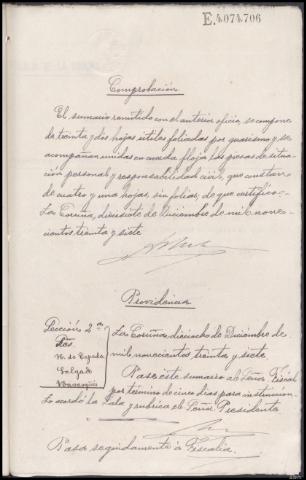 E.4074.706
Comprobación
El sumario remitido con el anterior oficio, se compone
de treinta y dos hojas útiles foliadas por guarismo y se
acompañan unidas en cuerda floja las piezas de situa-
ción personal y responsabilidad civil, que constan
de cuatro y una hojas, sin foliar, de que certifico.-
La Coruña, diecisiete de Diciembre de mil nove-
cientos treinta y siete
Providencia
Sección 2ª
Sres.
Salgado
La Coruña dieciocho de Diciembre de
mil novecientos treinta y siete.
Pase este sumario al Señor Fiscal
por término de cinco días para instrucción.
Lo acordó la Sala y rubrica el Señor Presidente
Pasa seguidamente á Fiscalía.